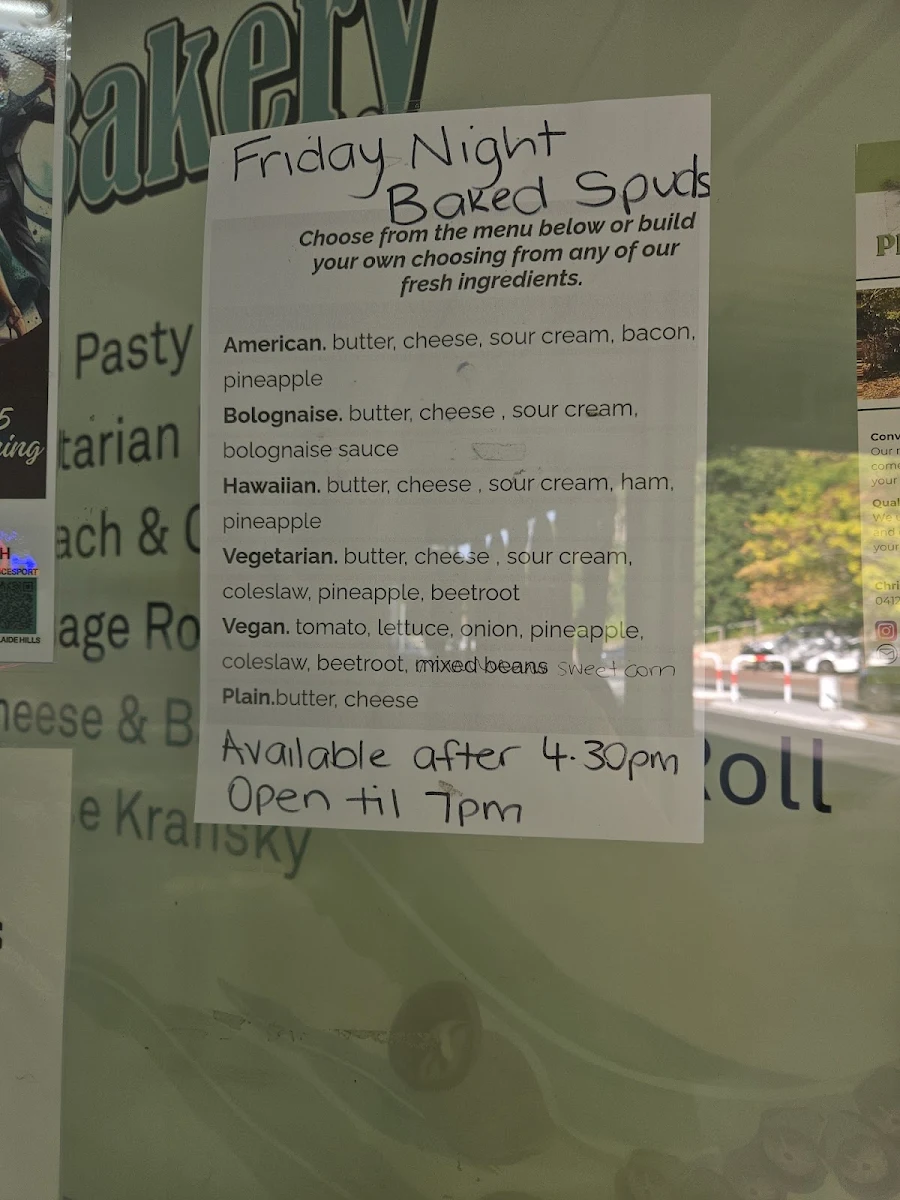 Bakery
Friday Night
Baked Spuds
Choose from the menu below or build
your own choosing from any of our
fresh ingredients.
American. butter, cheese, sour cream, bacon,
pineapple
Bolognaise. butter, cheese , sour cream,
bolognaise sauce
Hawaiian. butter, cheese , sour cream, ham,
pineapple
Vegetarian. butter, cheese , sour cream,
coleslaw, pineapple, beetroot
Vegan. tomato, lettuce, onion, pineapple,
coleslaw, beetroot, mixed beans sweet corn
Plain.butter, cheese
Available after 4.30pm
Open til 7pm
Pasty
tarian
ach & C
age Ro
heese & B
Roll
e Kransky
5
ing
H
CESPORT
LAIDE HILLS
Conv
Our
come
your
Qual
We
and
your
Chri
0417